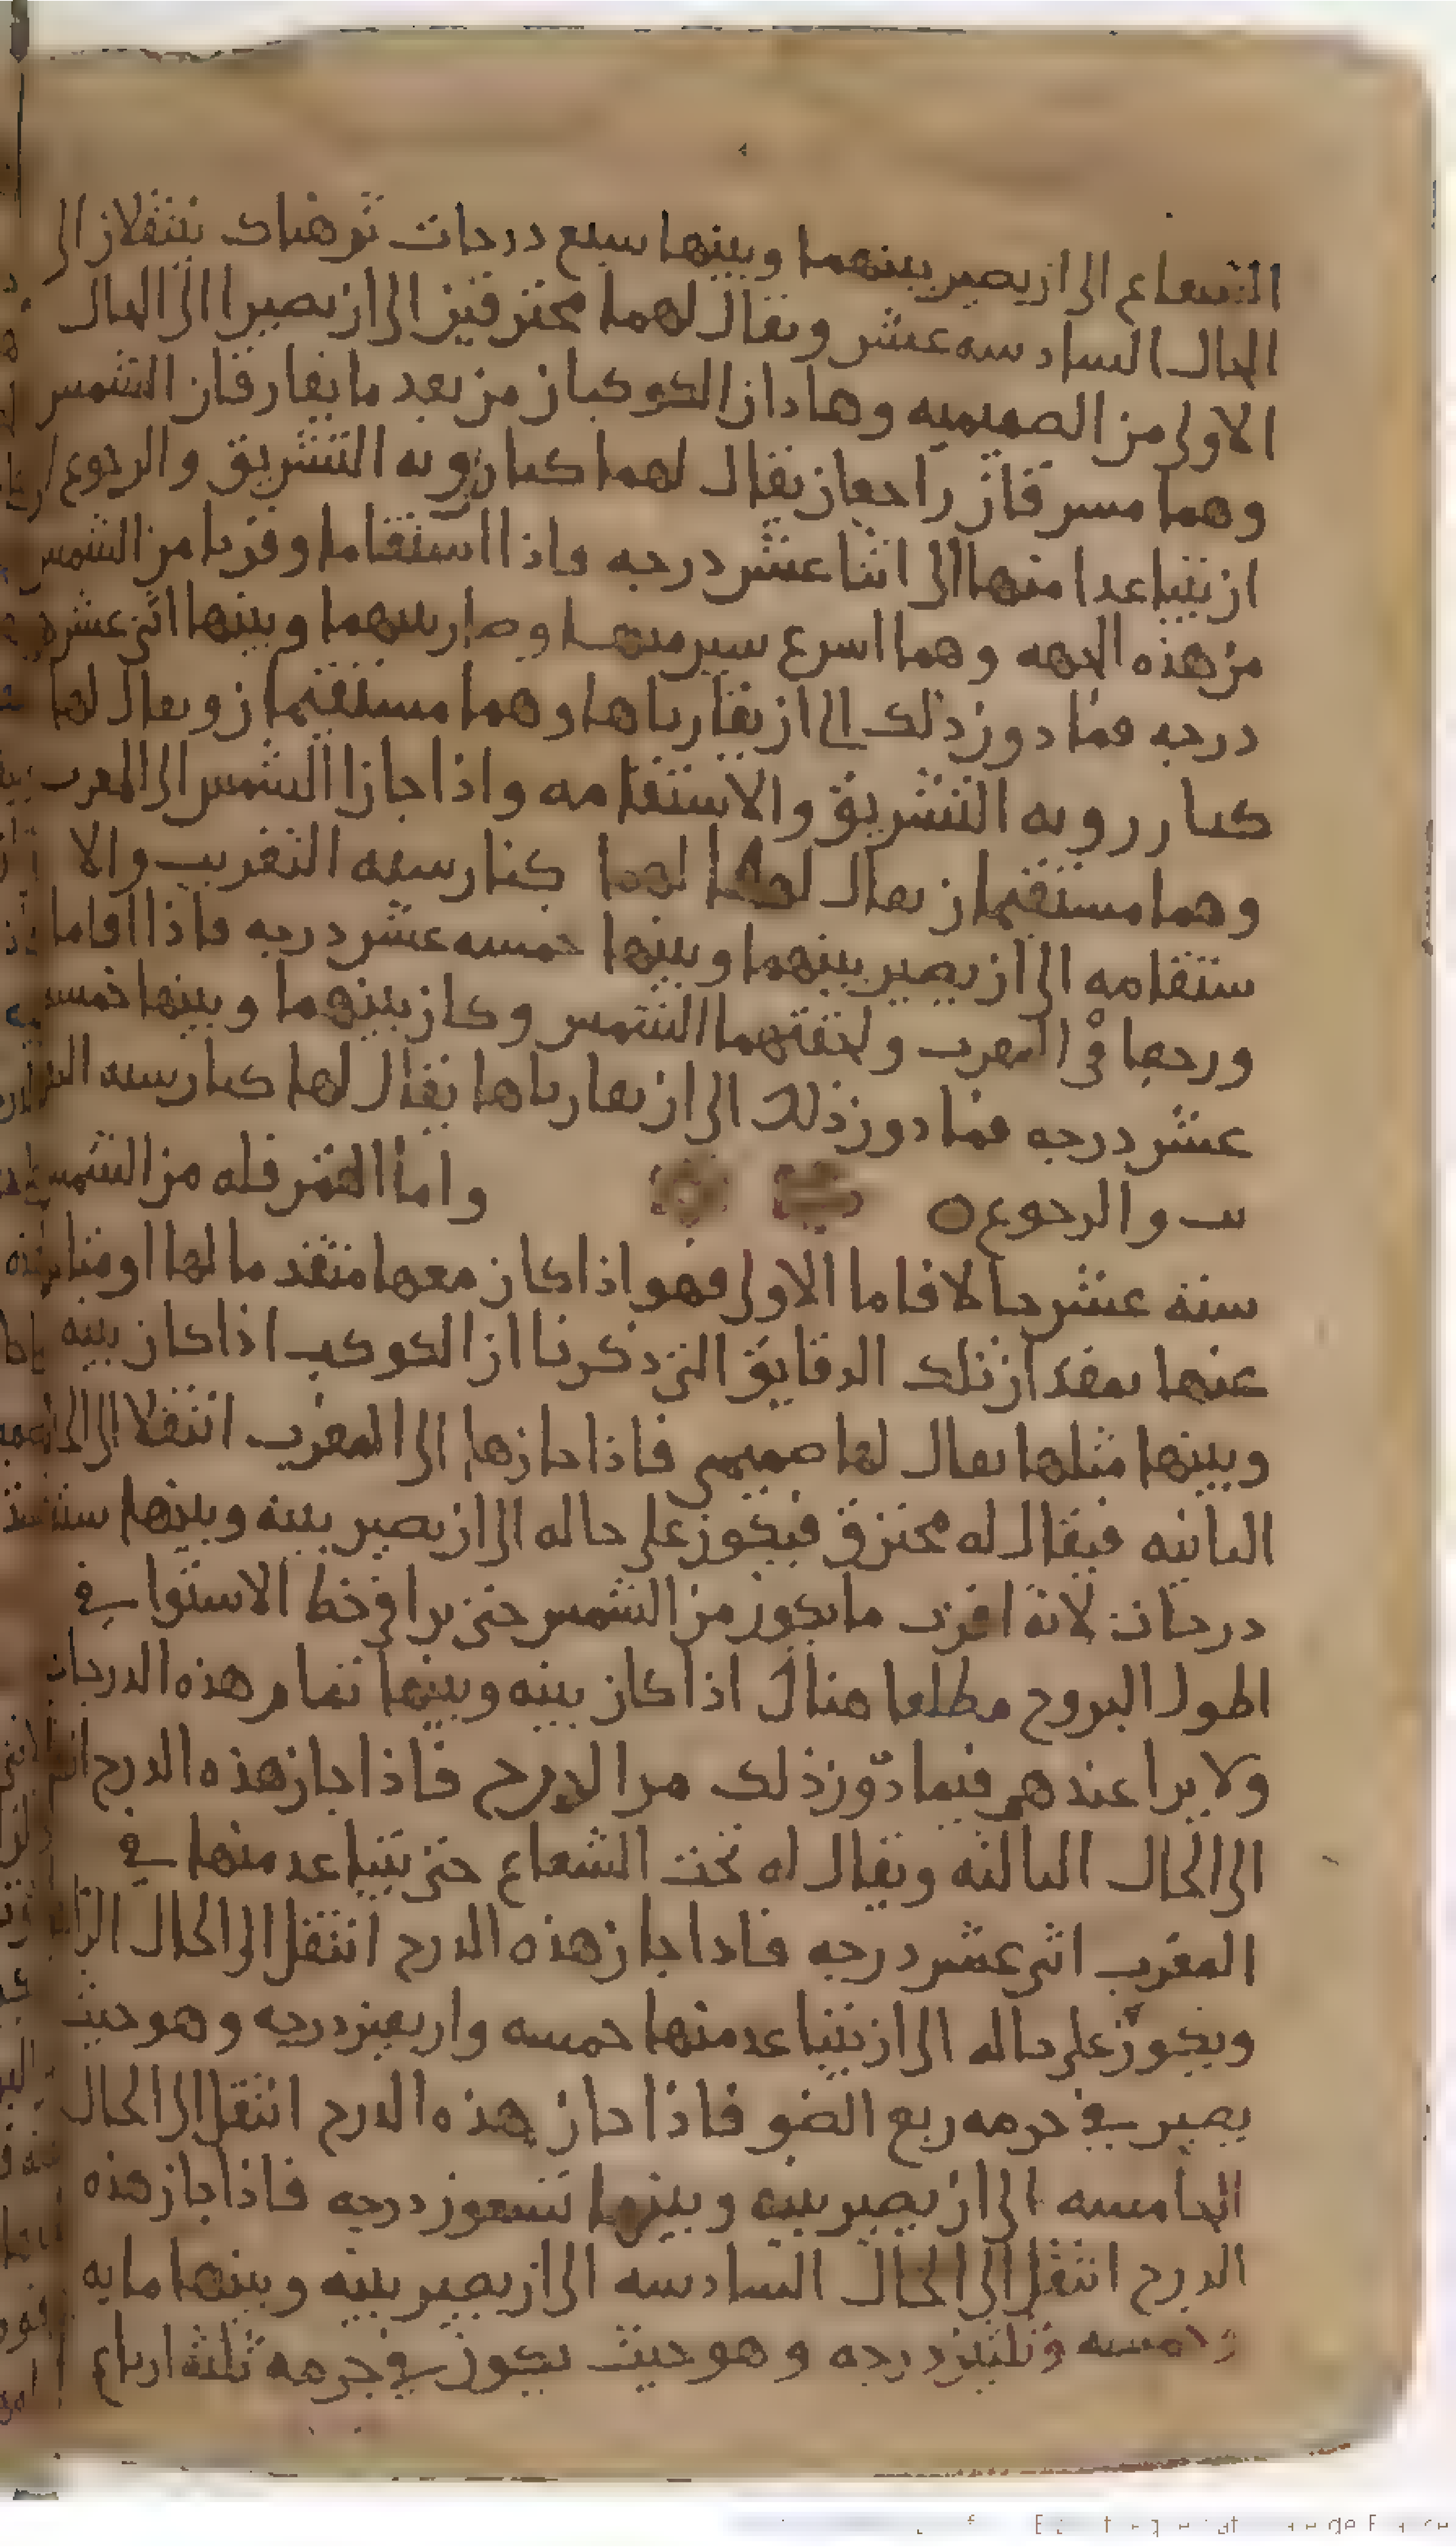 الشعاع الى ان يصير بينهما وبينها سبع درجات ثم هناك ينتقلان الى
الحال السادسه عشر ويقال لهما محترقين الى ان يصيرا الى الحال
الاولى من الصميميه وهاذان الكوكبان من بعد ما يفارقان الشمس
وهما مشرقان راجعان يقال لهما كنار رويه التشريق والرجوع الى
ان يتباعدا منها الى اثنا عشر درجه واذا استقاما وقربا من الشمس
من هذه الجهه وهما اسرع سير منها وصار بينهما وبينها اثنى عشر
درجه فما دون ذلك الى ان يقارباها وهما مستقيمان ويقال لها
كنار رويه التشريق والاستقامه واذا جازا الشمس الى المغرب
وهما مستقيمان يقال لهما لهما كنار سيه التغريب والا
ستقامه الى ان يصير بينهما وبينها خمسه عشر درجه فاذا اقاما
ورجعا في المغرب ولحقتهما الشمس وكان بينهما وبينها خمسه
عشر درجه فما دون ذلك الى ان يقارباها يقال لها كنار سيه التغر
يب والرجوع ○ واما القمر فله من الشمس
سته عشر حالا فاما الاولى فهو اذا كان معها متقدما لها او متاخر
عنها بمقدار تلك الدقايق التى ذكرنا ان الكوكب اذا كان بينه
وبينها مثلها يقال لها صميمي فاذا جازها الى المغرب انتقلا الى الحال
الثانيه فيقال له محترق فيكون على حاله الى ان يصير بينه وبينها ست
درجات لانه اقرب ما يكون من الشمس حتى يرا في خط الاستوا في
اطول البروج مطلعا هناك اذا كان بينه وبينها تمام هذه الدرجات
ولا يرا عندهم فيما دون ذلك من الدرج فاذا جاز هذه الدرج انتقل
الى الحال الثالثه ويقال له تحت الشعاع حتى يتباعد منها في
المغرب اثنى عشر درجه فاذا جاز هذه الدرج انتقل الى الحال الرابعه
ويكون على حاله الى ان يتباعد منها خمسه واربعين درجه وهو حيث
يصير في جرمه ربع الضو فاذا جاز هذه الدرج انتقل الى الحال
الخامسه الى ان يصير بينه وبينها تسعون درجه فاذا جاز هذه
الدرج انتقل الى الحال السادسه الى ان يصير بينه وبينها مايه
وخمسه وثلثين درجه وهو حيث يكون في جرمه ثلثه ارباع